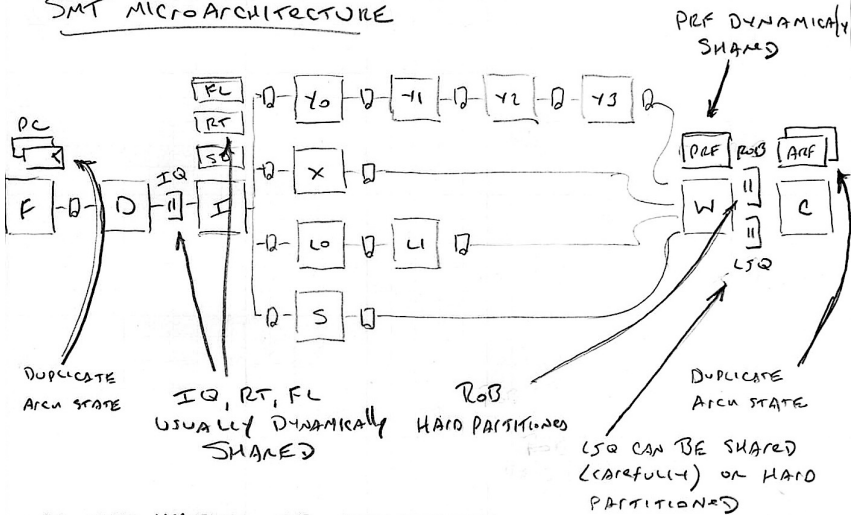 SMT MICROARCHITECTURE
PRF DYNAMICALLY
SHARED
FL
RT
SB
PC
IQ
F
D
I
Y0
Y1
Y2
Y3
X
L0
L1
S
PRF
ROB
ARF
W
C
LSQ
DUPLICATE
ARCH STATE
IQ, RT, FL
USUALLY DYNAMICALLY
SHARED
ROB
HARD PARTITIONED
DUPLICATE
ARCH STATE
LSQ CAN BE SHARED
(CAREFULLY) OR HARD
PARTITIONED